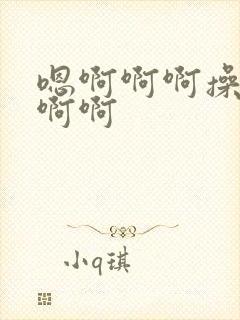 嗯啊啊啊操
啊啊
小q琪